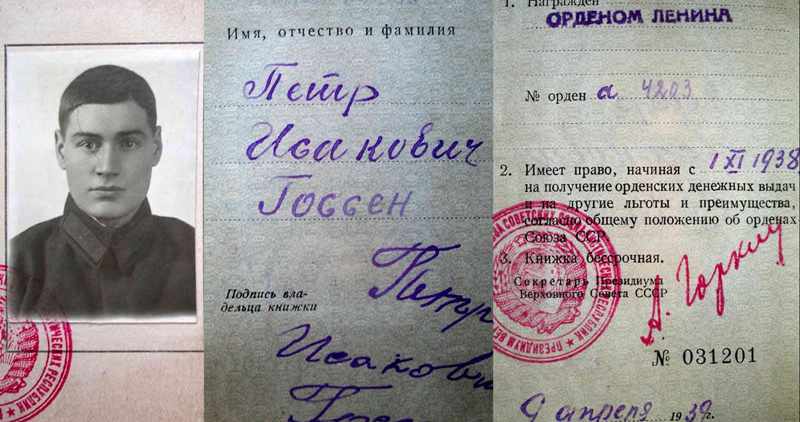 ИЧЕСКИХ РЕСПУБЛИК
Имя, отчество и фамилия
Петр
Исакович
Госсен
Подпись вла-
дельца книжки
Петр
Исакови
Госсе
1. Награжден
ОРДЕНОМ ЛЕНИНА
№ орден а 4203
2. Имеет право, начиная с 1 XI 1938
на получение орденских денежных выдач
и на другие льготы и преимущества,
согласно общему положению об орденах
Союза ССР
3. Книжка бессрочная.
Секретарь Президиума
Верховного Совета СССР
А. Горкин
СОВЕТСКИХ СОЦИАЛИСТИЧЕСКИХ РЕСПУБЛИК
ПРЕЗИДИУМ ВЕ
№ 031201
9 апреля 1939 г.